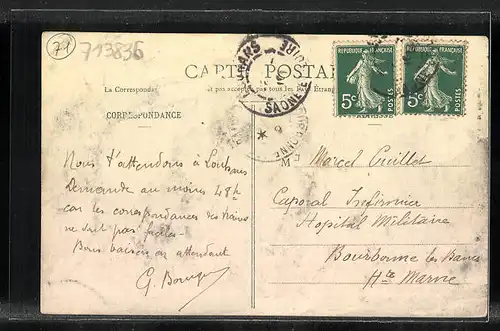 71
713836
CARTE POSTALE
La Correspondance
pas acceptée par tous les Pays Étrang
CORRESPONDANCE
SAONE
REPUBLIQUE FRANÇAISE
5c
POSTES
REPUBLIQUE FRANÇAISE
5c
POSTES
Nous t'attendons à Louhans
Demande au moins 48h
car les correspondances des trains
ne sont pas faciles
Bons baisers en attendant
G.
M
Marcel
Caporal Infirmier
Hopital Militaire
Bourbonne les Bains
Hte Marne